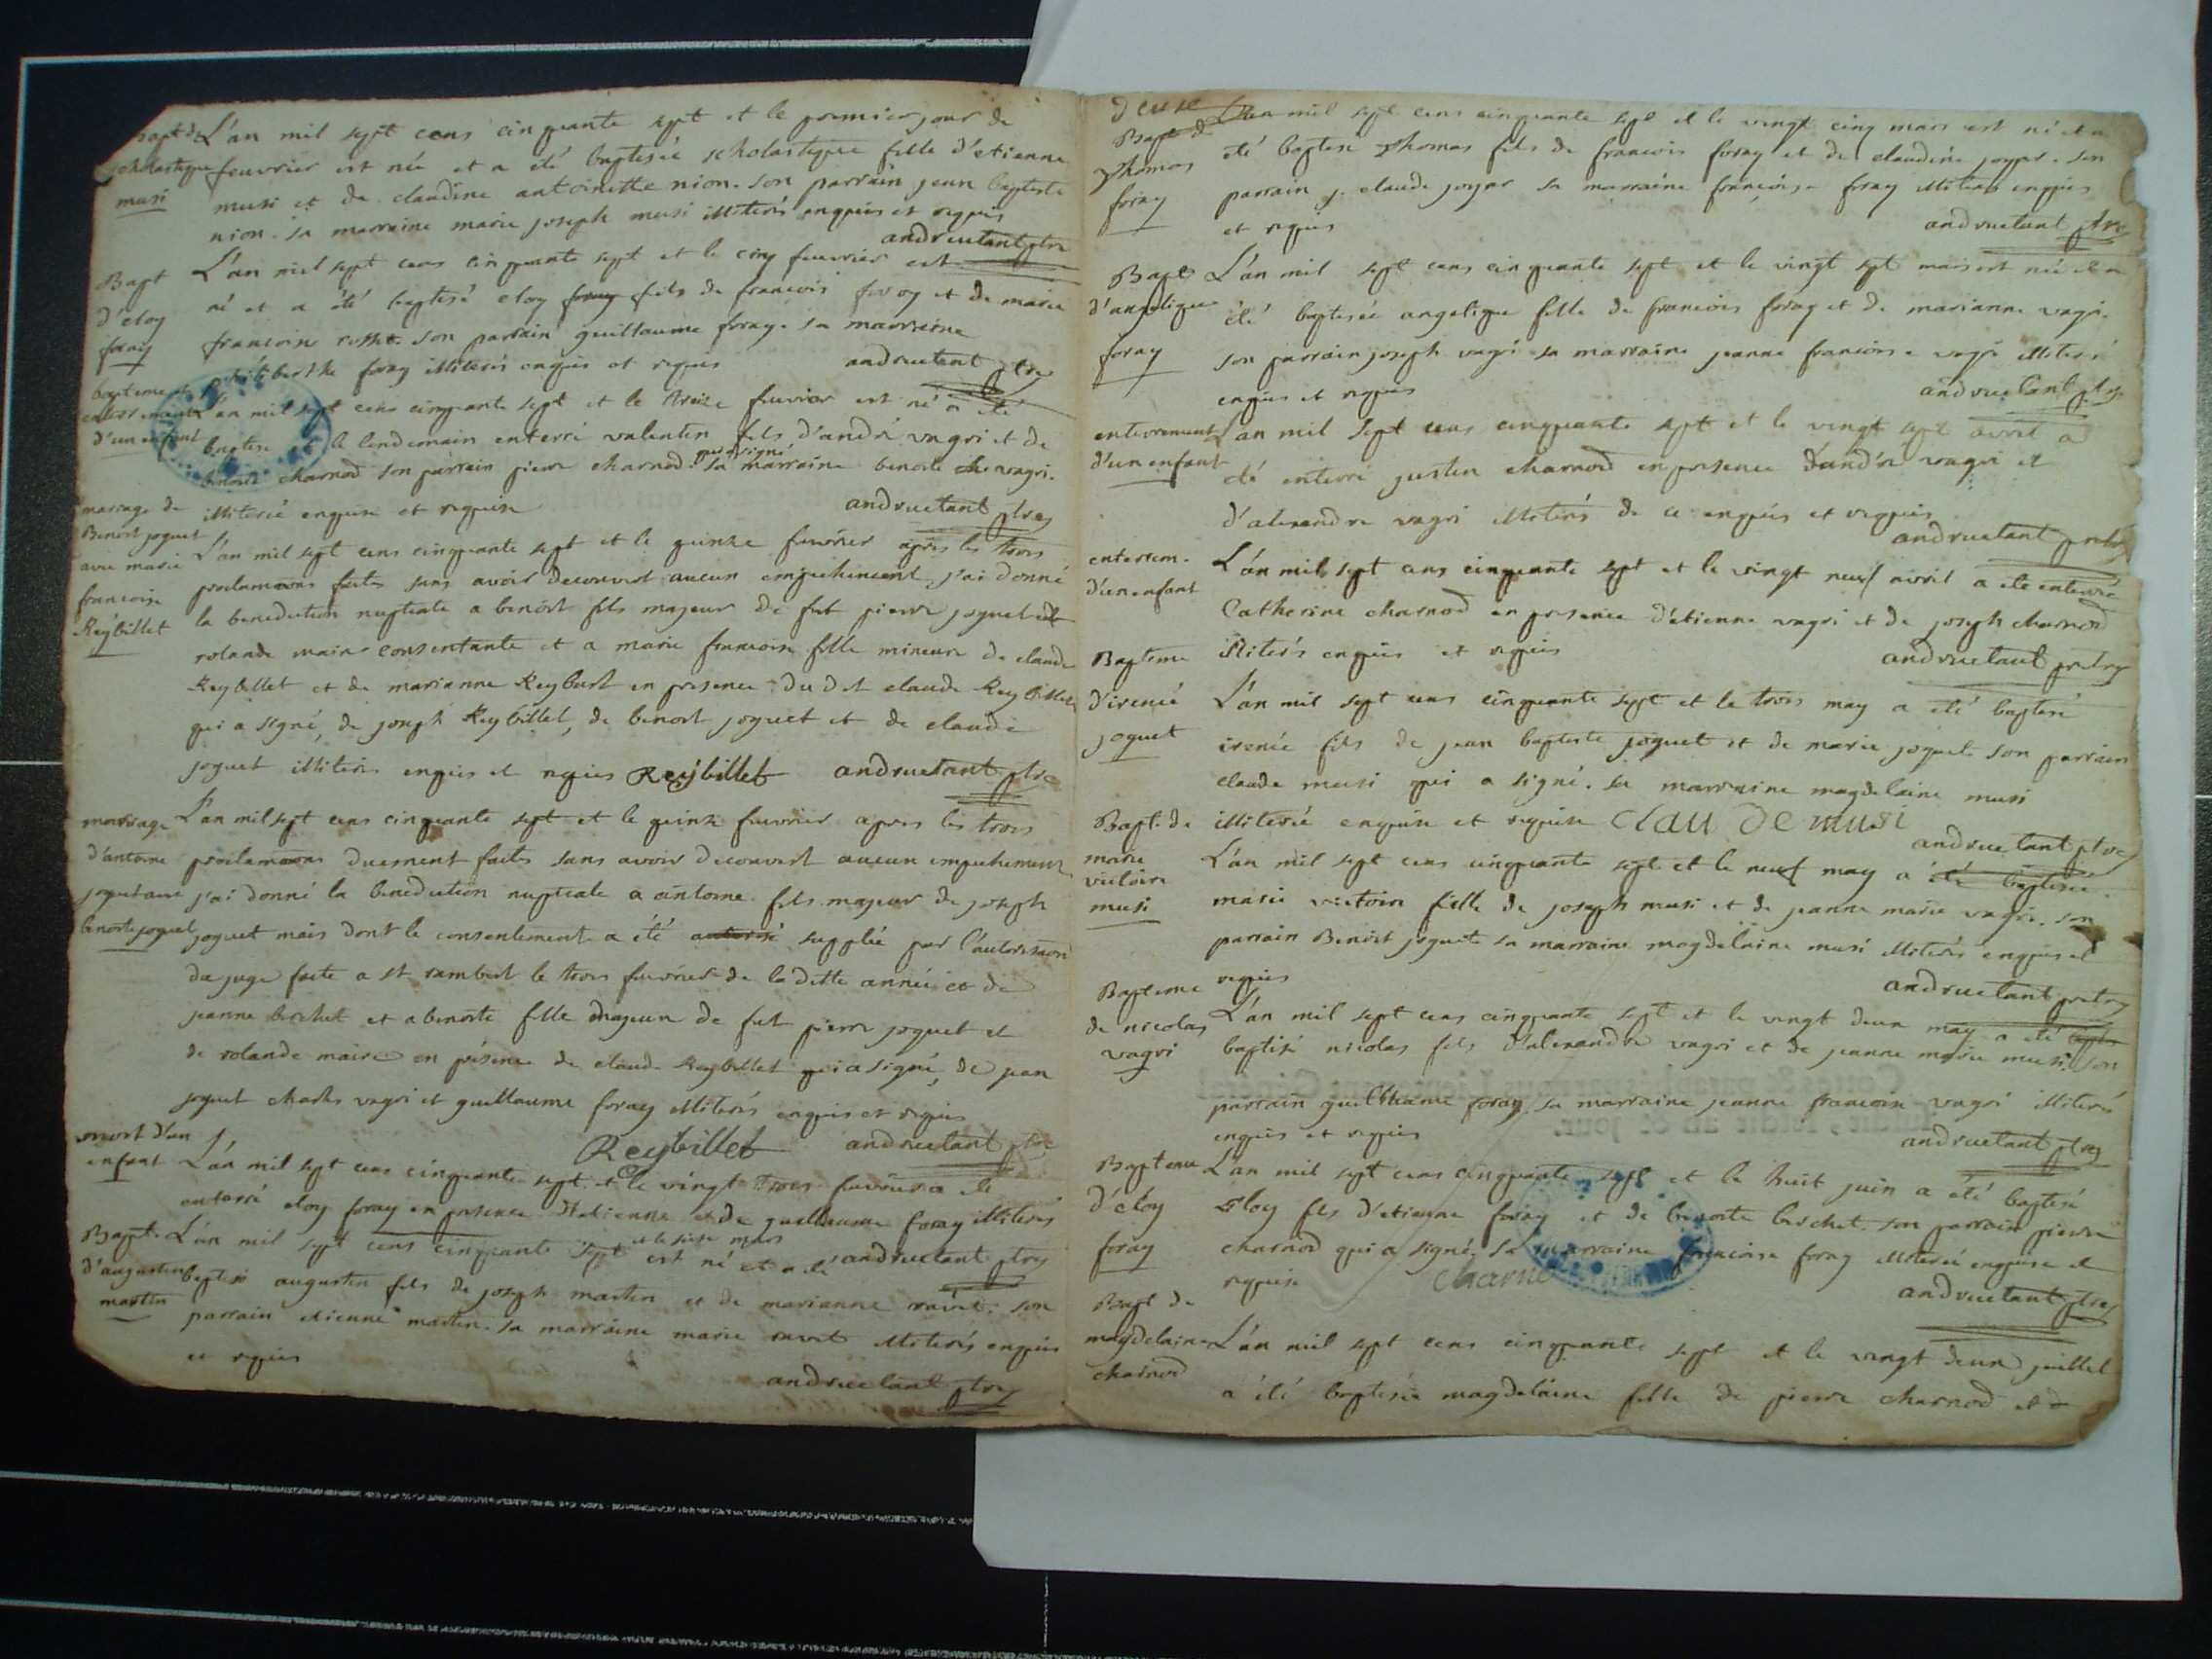 Bapt de
scholastique
musi
L'an mil sept cens cinquante sept et le premier jour de
feuvrier est née et a été baptisée scholastique fille d'etienne
musi et de claudine antoinette nion. son parrain jean baptiste
nion. sa marraine marie joseph musi illiterés enquis et requis
andructant ptre
Bapt
d'eloy
foray
L'an mil sept cens cinquante sept et le cinq feuvrier est
né et a été baptisé eloy foray fils de francois foray et de marie
francoise rosset. son parrain guillaume foray. sa marraine
philiberthe foray illiterés enquis et requis andructant ptre
bapteme et
enterrement
d'un enfant
L'an mil sept cens cinquante sept et le treize feuvrier est né a été
baptisé et le lendemain enterré valentin fils d'andré vagri et de
benoite charnod son parrain pierre charnod qui a signé sa marraine benoite vagri.
illiterée enquise et requise andructant ptre
mariage de
Benoit joguet
avec marie
francoise
Reybillet
L'an mil sept cens cinquante sept et le quinze feuvrier apres les trois
proclamaons faites sans avoir decouvert aucun empechement j'ai donné
la benediction nuptiale a benoit fils majeur de fut pierre joguet et
rolande maire consentante et a marie francoise fille mineure de claude
Reybillet et de marianne Reybert en presence dudit claude Reybillet
qui a signé, de joseph Reybillet, de benoit joguet et de claude
joguet illiterés enquis et requis Reÿbillet andructant ptre
mariage
d'antoine
joguet avec
benoite joguet
L'an mil sept cens cinquante sept et le quinze feuvrier apres les trois
proclamaons duement faites sans avoir decouvert aucun empechement
j'ai donné la benediction nuptiale a antoine fils majeur de joseph
joguet mais dont le consentement a été autorisé supplée par l'autorisaon
du juge faite a st rambert le trois feuvrier de la ditte année et de
jeanne berchet et a benoite fille majeure de fut pierre joguet et
de rolande maire en presence de claude Reybillet qui a signé, de jean
joguet charles vagri et guillaume foray illiterés enquis et requis
Reybillet andructant ptre
mort d'un
enfant
L'an mil sept cens cinquante sept et le vingt trois feuvrier a été
enterré eloy foray en presence d'etienne et de guillaume foray illiterés
andructant ptre
Bapt.
d'augustin
martin
L'an mil sept cens cinquante sept et le seize mars est né et a été
baptisé augustin fils de joseph martin et de marianne ravet. son
parrain etienne martin. sa marraine marie ravet illiterés enquis
et requis
andructant ptre
deuse
Bapt d
Thomas
foray
L'an mil sept cens cinquante sept et le vingt cinq mars est né et a
été baptisé Thomas fils de francois foray et de claudine joyar. son
parrain j. claude joyar sa marraine francoise foray illiterés enquis
et requis
andructant ptre
Bapt
d'angelique
foray
L'an mil sept cens cinquante sept et le vingt sept mars est née et a
été baptisée angelique fille de francois foray et de marianne vagri.
son parrain joseph vagri sa marraine jeanne francoise vagri illiterés
enquis et requis
andructant ptre
enterrement
d'un enfant
L'an mil sept cens cinquante sept et le vingt sept avril a
été enterré justin charnod en presence d'andré vagri et
d'alexandre vagri illiterés de ce enquis et requis
andructant pretre
enterrem.
d'un enfant
L'an mil sept cens cinquante sept et le vingt neuf avril a été enterré
Catherine charnod en presence d'etienne vagri et de joseph charnod
illiterés enquis et requis
andructant pretre
Bapteme
d'irenée
joguet
L'an mil sept cens cinquante sept et le trois may a été baptisé
irenée fils de jean baptiste joguet et de marie joguet son parrain
claude musi qui a signé. sa marraine magdelaine musi
illiterée enquise et requise Clau De musi
andructant ptre
Bapt. de
marie
victoire
musi
L'an mil sept cens cinquante sept et le neuf may a été baptisée
marie victoire fille de joseph musi et de jeanne marie vagri. son
parrain Benoit joguet sa marraine magdelaine musi illiterés enquis et
requis
andructant pretre
Bapteme
de nicolas
vagri
L'an mil sept cens cinquante sept et le vingt deux may a été
baptisé nicolas fils d'alexandre vagri et de jeanne marie musi. son
parrain guilliaume foray. sa marraine jeanne francoise vagri illiterés
enquis et requis
andructant ptre
Bapteme
d'eloy
foray
L'an mil sept cens cinquante sept et le huit juin a été baptisé
Eloy fils d'etienne foray et de benoite berchet. son parrain pierre
charnod qui a signé. sa marraine francoise foray illiterée enquise et
requise charno
andructant ptre
Bapt de
magdelaine
charnod
L'an mil sept cens cinquante sept et le vingt deux juillet
a été baptisée magdelaine fille de pierre charnod et de